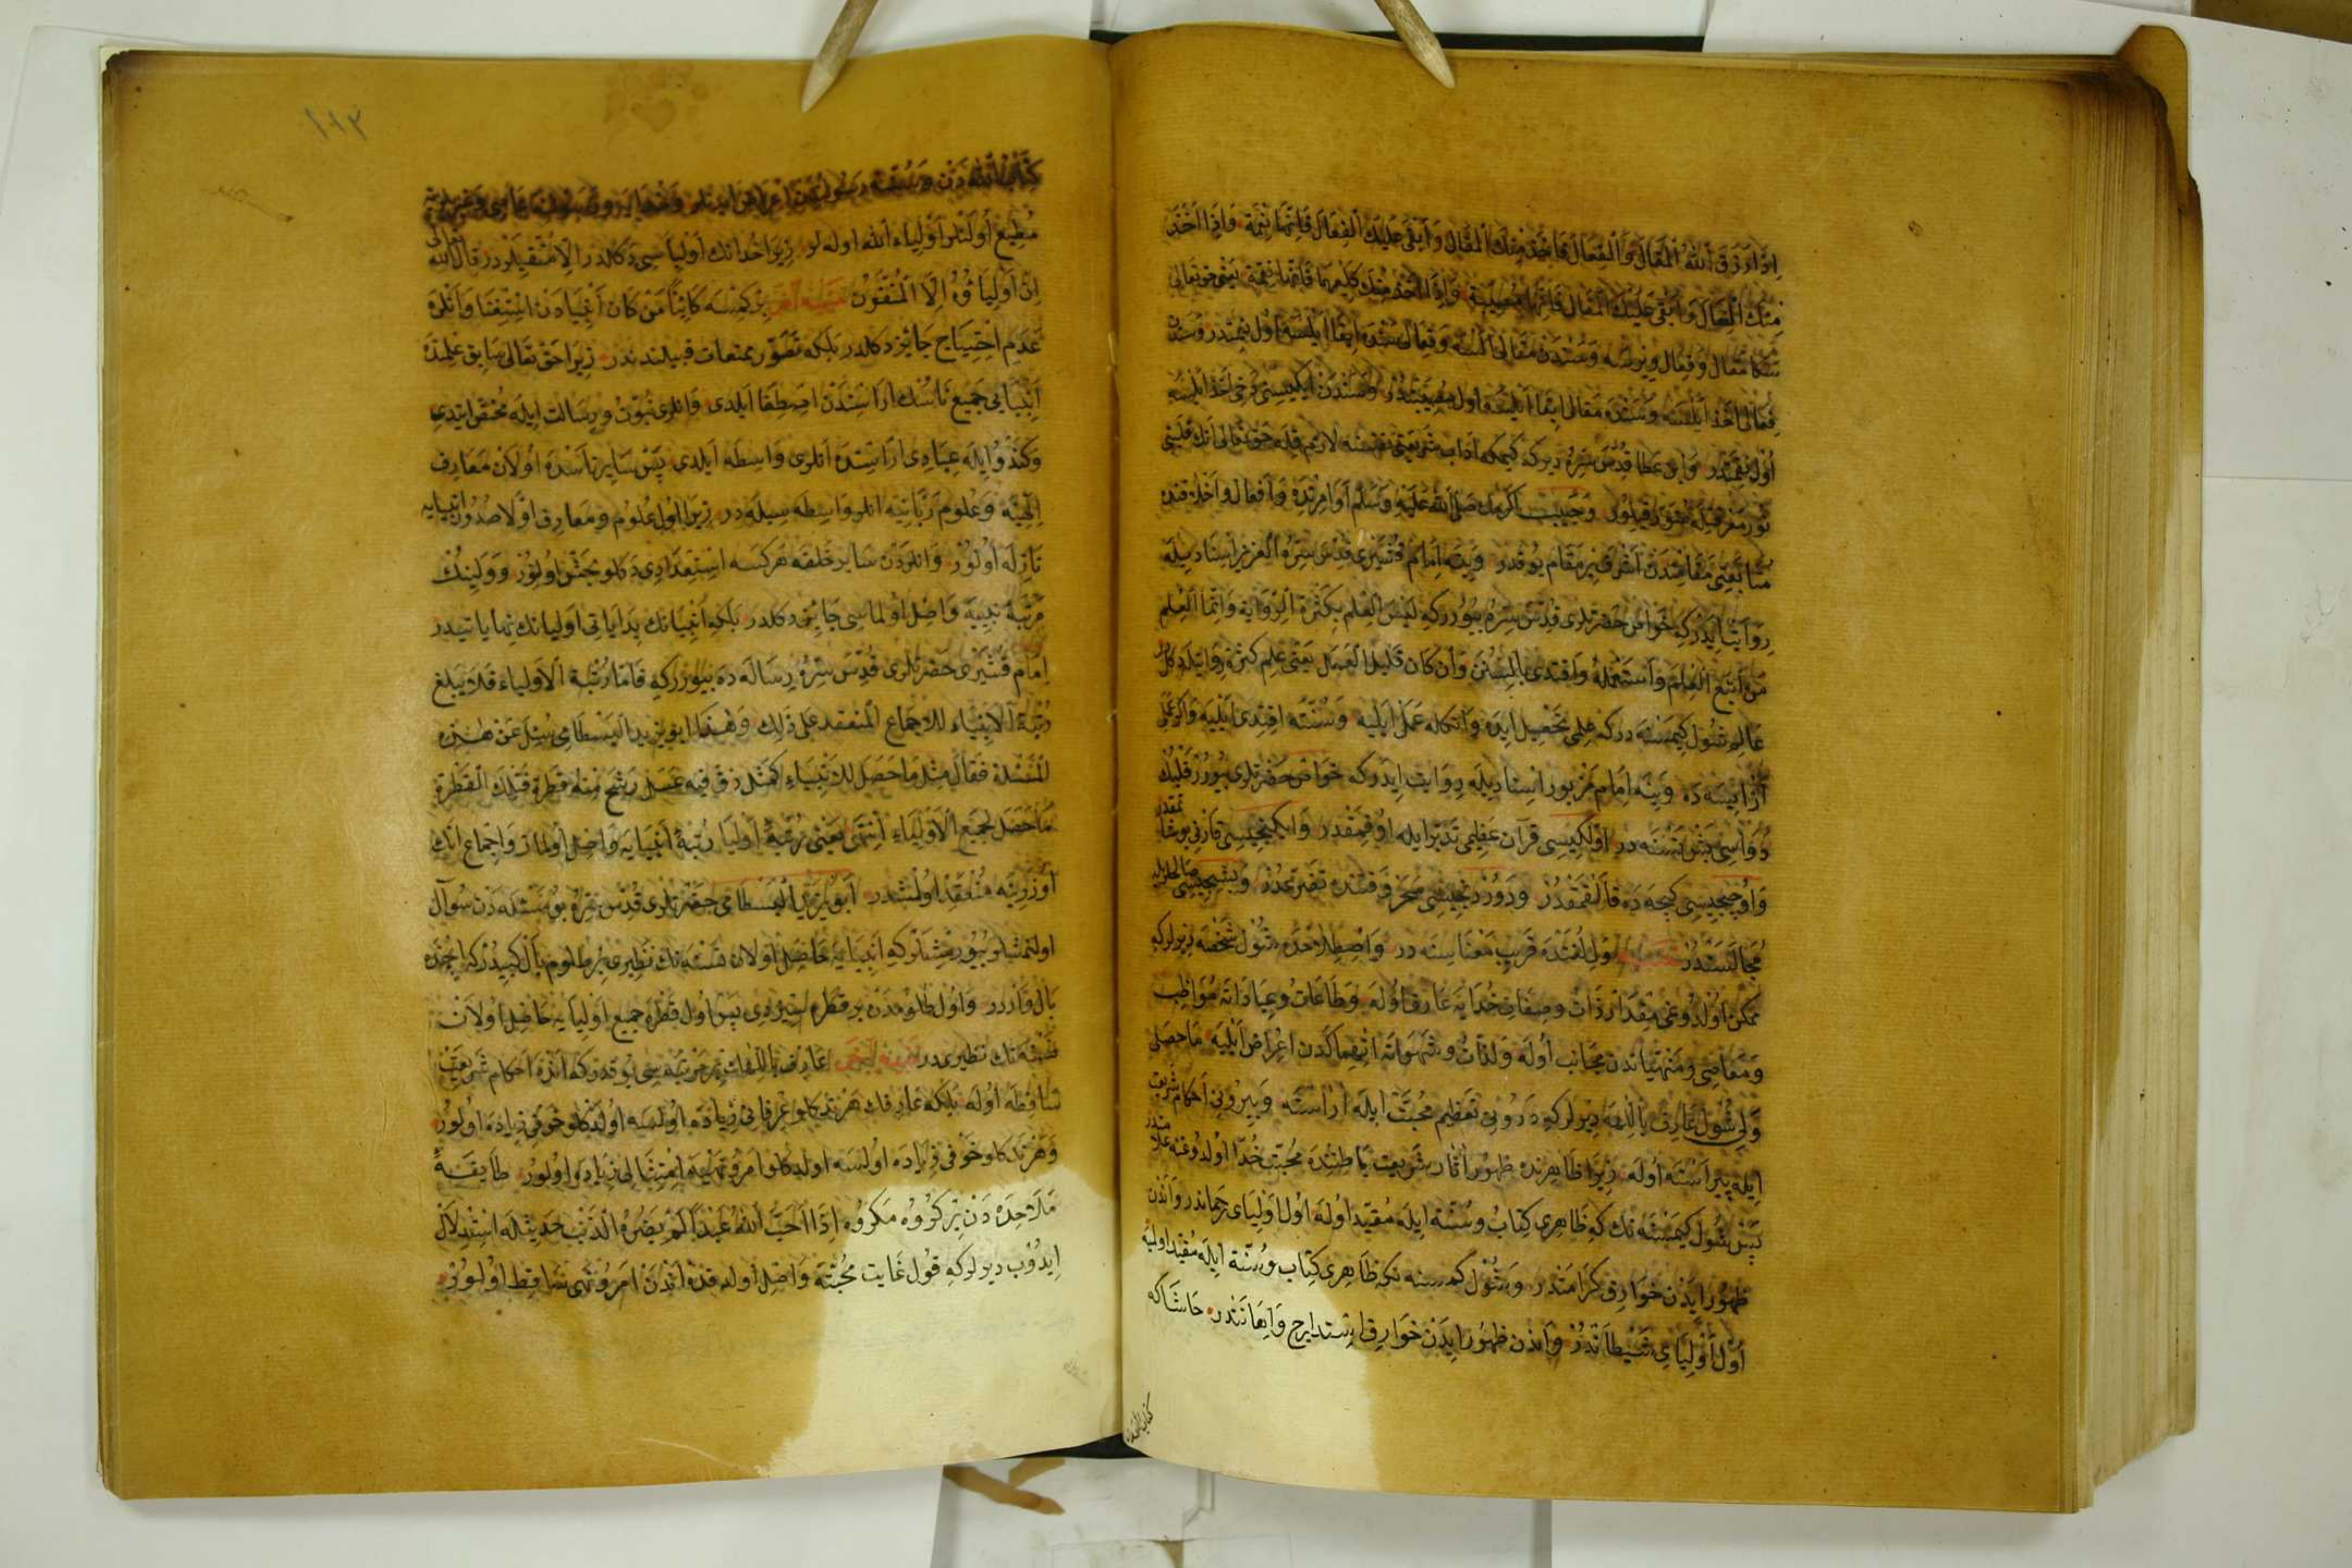 اِذَا رَزَقَ اللّٰهُ الْمَقَالَ وَالْفِعَالَ فَاَخَذَ مِنْكَ الْمَقَالَ وَاَبْقٰى عَلَيْكَ الْفِعَالَ فَاِنَّهَا نِعْمَة وَاِذَا اَخَذَ
مِنْكَ الْفِعَالَ وَاَبْقٰى عَلَيْكَ الْمَقَالَ فَاِنَّهَا مُصِيبَة وَاِذَا اَخَذَ مِنْكَ كِلَيْهِمَا فَاِنَّهَا نِقْمَة يَعْنِى حق تعالى
سكا مقال وفعال ويرسه وسندن مقالى السه وفعالى سنده ابقا ايلسه اول نعمتدر وسندن
فعالى اخذ ايلسه وسنده مقالى ابقا ايلسه اول مصيبتدر وسندن ايكيسنى دخى اخذ ايلسه
اول نقمتدر وابن عطا قدس سره ديركه كيمكه اداب شريعتى نفسنه لازم قيله حق تعالى انك قلبنى
نور معرفتيله منور قيلور وحبيب اكرمك صلى الله عليه وسلم اوامرنده وافعال واخلاقنده
متابعتى مقامندن اشرف بر مقام يوقدر وينه امام قشيرى قدس سره العزيز اسناديله
روايت ايدركه خواص حضرتلرى قدس سره بيوررکه ليس العلم بكثرة الرواية وانما العلم
من اتبع العلم واستعمله واقتدى بالسنن وان كان قليل العمل يعنى علم كثرة روايتله دكل
عالم شول كيمسنه دركه علمى تحصيل ايده وانكله عمل ايليه وسنته اقتدى ايليه واكر علمى
از ايسه ده وينه امام مزبور اسناديله روايت ايدركه خواص حضرتلرى بيورر قلبك
دواسى بش نسنه در اولكيسى قرآن عظيمى تدبر ايله اوقمقدر وايكنجيسى قارنى بوش طوتمقدر
واوچنجيسى كيجه ده قالقمقدر ودوردنجيسى سحر وقتنده تضرعدر وبشنجيسى صالحلرله
مجالستدر ولى لغتده قريب معناسنه در واصطلاحده شول شخصه ديرلركه
ممكن اولدوغى مقدار ذات وصفات خدايه عارف اوله وطاعات وعباداته مواظب
ومعاصى ومنهياتدن مجانب اوله ولذات وشهواته انهماكدن اعراض ايليه ماحصلى
ولى شول عارف بالله ديرلركه درونى تعظيم محبت ايله اراسته وبيرونى احكام شريعت
ايله پيراسته اوله زيرا ظاهرنده ظهور اثار شريعت باطننده محبت خدا اولدوغنه علامتدر
پس شول كيمسنه نك كه ظاهرى كتاب وسنته ايله مقيد اوله اول اولياى رحماندر واندن
ظهور ايدن خوارق كرامتدر وشول كمسنه نكه ظاهرى كتاب وسنته ايله مقيد اولميه
اول اولياى شيطاندر واندن ظهور ايدن خوارق استدراج واهانتدر حاشاكه
كتاب الله دن
١١٣
كتاب الله دن وسنت رسولدن اعراض ايدنلر
مطيع اولنلر اولياء الله اوله لر زيرا خدانك اولياسى دكلدر الا متقيلردر قال الله تعالى
ان اولياؤه الا المتقون بر كمسنه كائنا من كان انبيادن استغنا وانلره
عدم احتياج جائز دكلدر بلكه تصور ممتنعات قبيلندندر زيرا حق تعالى سابق علمنده
انبيايى جميع ناسك اراسندن اصطفا ايلدى وانلرى نبوت ورسالت ايله مختص ايتدى
وكندو ايله عبادى اراسنده انلرى واسطه ايلدى پس ساير ناسده اولان معارف
الهيه وعلوم ربانيه انلر واسطه سيله در زيرا اول علوم ومعارف اولا صدور انبيايه
نازله اولور وانلردن ساير خلقه هركسه استعدادى دكلو بخش اولور وولينك
مرتبه نبييه واصل اولماسى جائز دكلدر بلكه انبيانك بداياتى اوليانك نهاياتيدر
امام قشيرى حضرتلرى قدس سره رساله ده بيوررکه فاما رتبة الاولياء فلا يبلغ
رتبة الانبياء للاجماع المنعقد على ذلك وهذا ابو يزيد البسطامى سئل عن هذه
المسئلة فقال مثل ما حصل للانبياء كمثل زق فيه عسل رشح منه قطرة فتلك القطرة
ما حصل لجميع الاولياء انتهى يعنى رتبة اوليا رتبة انبيايه واصل اولماز واجماع انك
اوزرينه منعقد اولمشدر ابو يزيد البسطامى حضرتلرى قدس سره بو مسئله دن سؤال
اولنمشلر بيورمشلركه انبيايه حاصل اولان نسنه نك نظيرى بر طلوم بال كبيدركه ايچنده
بال واردر واول طلومدن بر قطره سيزدى پس اول قطره جميع اوليايه حاصل اولان
نسنه نك نظيريدر عارف باللهك بر مرتبه سى يوقدركه انده احكام شريعت
ساقطه اوله بلكه عارفك هر نه دكلو عرفانى زياده اولسه اولدكلو خوفى زياده اولور
وهر نه دكلو خوفى زياده اولسه اولدكلو امر ونهيه امتثالى زياده اولور طايفه
ملاحده دن بر كروه مكروه اذا احب الله عبدا لم يضره الذنب حديثله استدلال
ايدوب ديرلركه قول غايت محبته واصل اولدقده اندن امر ونهى ساقط اولور